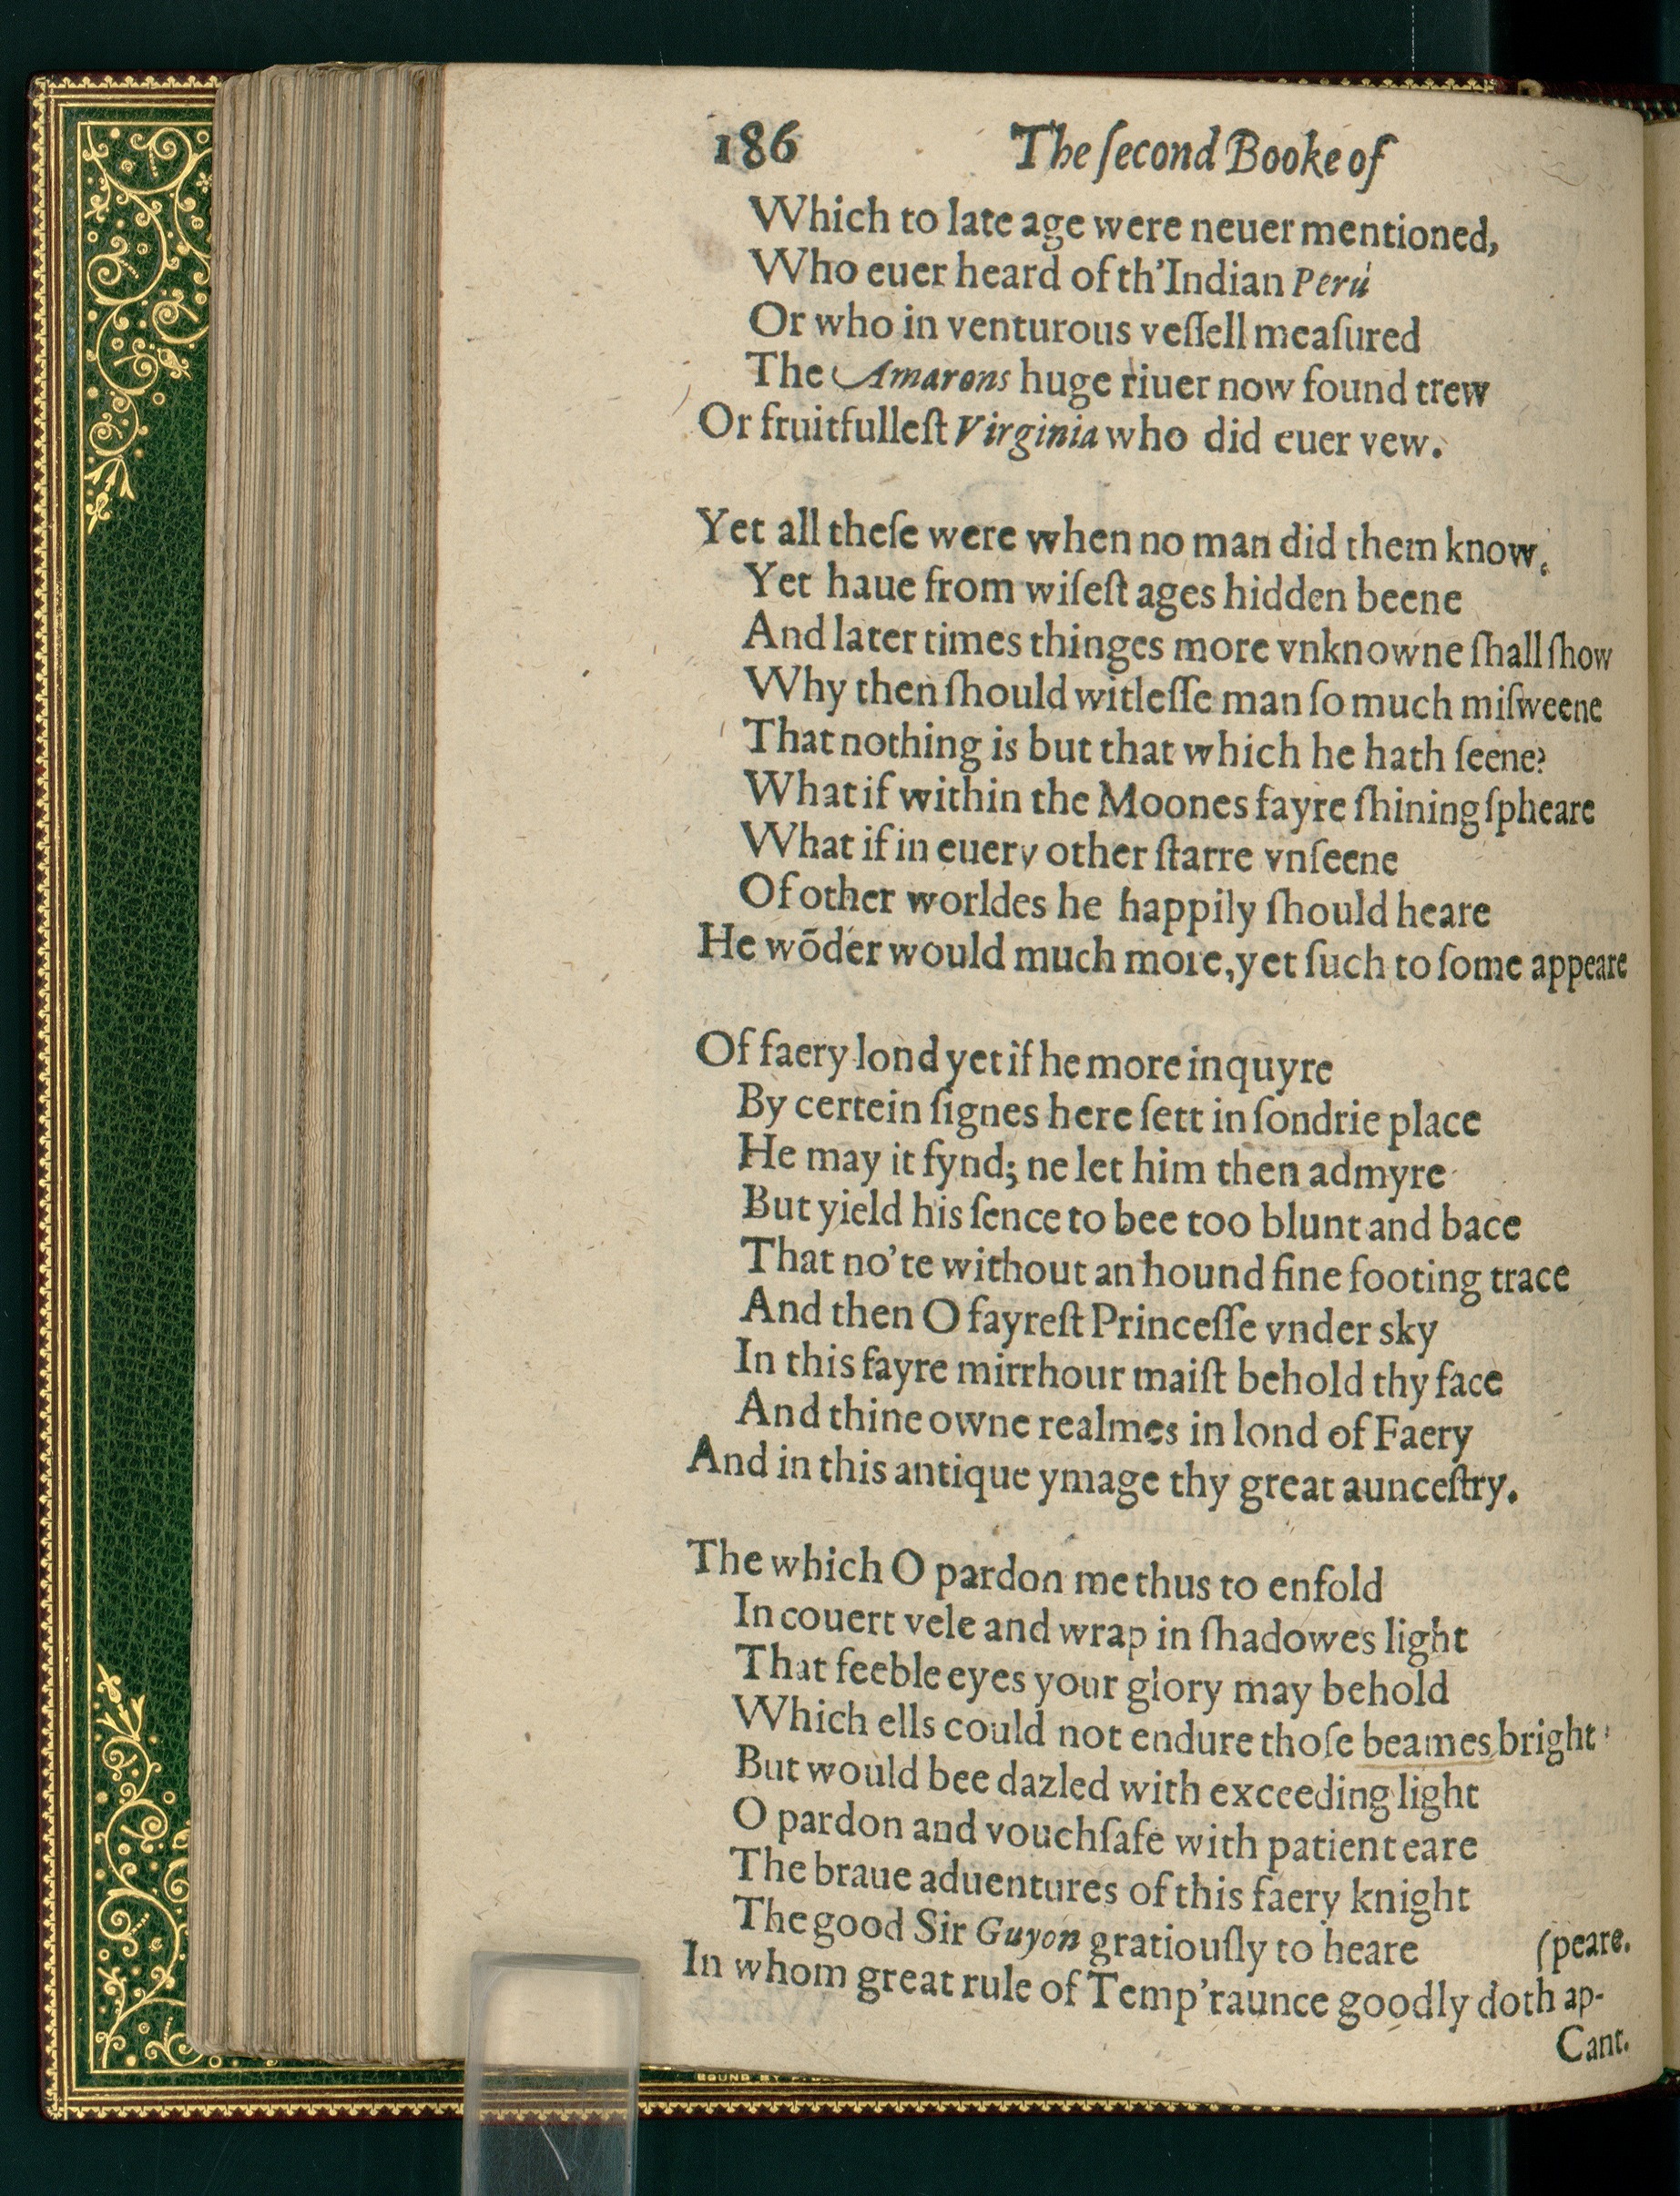 186 The ſecond Booke of
Which to late age were neuer mentioned,
Who euer heard of th'Indian Perù
Or who in venturous veſſell meaſured
The Amarons huge riuer now found trew
Or fruitfulleſt Virginia who did euer vew.
Yet all theſe were when no man did them know,
Yet haue from wiſeſt ages hidden beene
And later times thinges more vnknowne ſhall ſhow
Why then ſhould witleſſe man ſo much miſweene
That nothing is but that which he hath ſeene?
What if within the Moones fayre ſhining ſpheare
What if in euery other ſtarre vnſeene
Of other worldes he happily ſhould heare
He wõder would much more, yet ſuch to ſome appeare
Of faery lond yet if he more inquyre
By certein ſignes here ſett in ſondrie place
He may it fynd; ne let him then admyre
But yield his ſence to bee too blunt and bace
That no'te without an hound fine footing trace
And then O fayreſt Princeſſe vnder sky
In this fayre mirrhour maiſt behold thy face
And thine owne realmes in lond of Faery
And in this antique ymage thy great aunceſtry.
The which O pardon me thus to enfold
In couert vele and wrap in ſhadowes light
That feeble eyes your glory may behold
Which ells could not endure thoſe beames bright
But would bee dazled with exceeding light
O pardon and vouchſafe with patient eare
The braue aduentures of this faery knight
The good Sir Guyon gratiouſly to heare
In whom great rule of Temp'raunce goodly doth ap-
(peare.
Cant.
BOUND BY